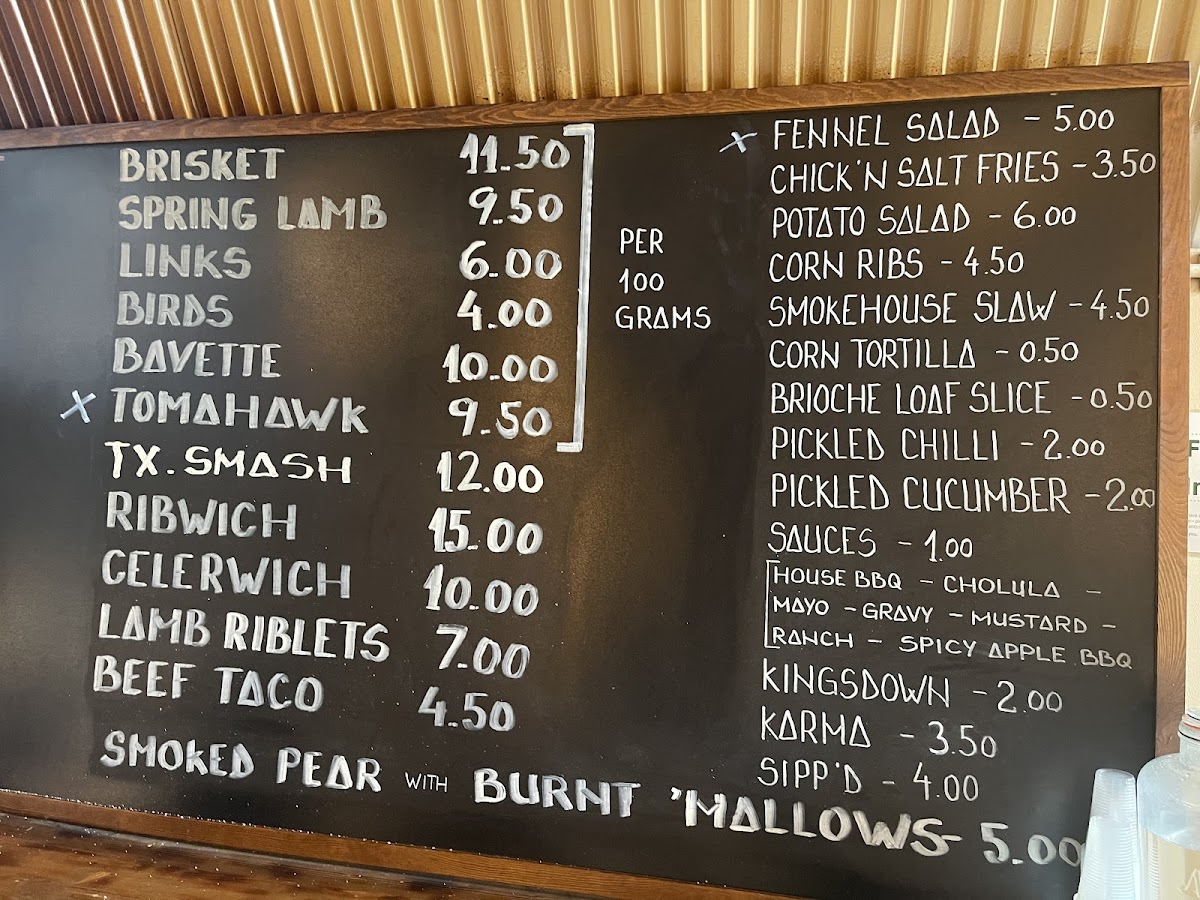 BRISKET 11.50
SPRING LAMB 9.50
LINKS 6.00
BIRDS 4.00
BAVETTE 10.00
X TOMAHAWK 9.50
PER
100
GRAMS
TX. SMASH 12.00
RIBWICH 15.00
CELERWICH 10.00
LAMB RIBLETS 7.00
BEEF TACO 4.50
X FENNEL SALAD - 5.00
CHICK'N SALT FRIES - 3.50
POTATO SALAD - 6.00
CORN RIBS - 4.50
SMOKEHOUSE SLAW - 4.50
CORN TORTILLA - 0.50
BRIOCHE LOAF SLICE - 0.50
PICKLED CHILLI - 2.00
PICKLED CUCUMBER - 2.00
SAUCES - 1.00
HOUSE BBQ - CHOLULA -
MAYO - GRAVY - MUSTARD -
RANCH - SPICY APPLE BBQ
KINGSDOWN - 2.00
KARMA - 3.50
SIPP'D - 4.00
SMOKED PEAR WITH BURNT 'MALLOWS - 5.00